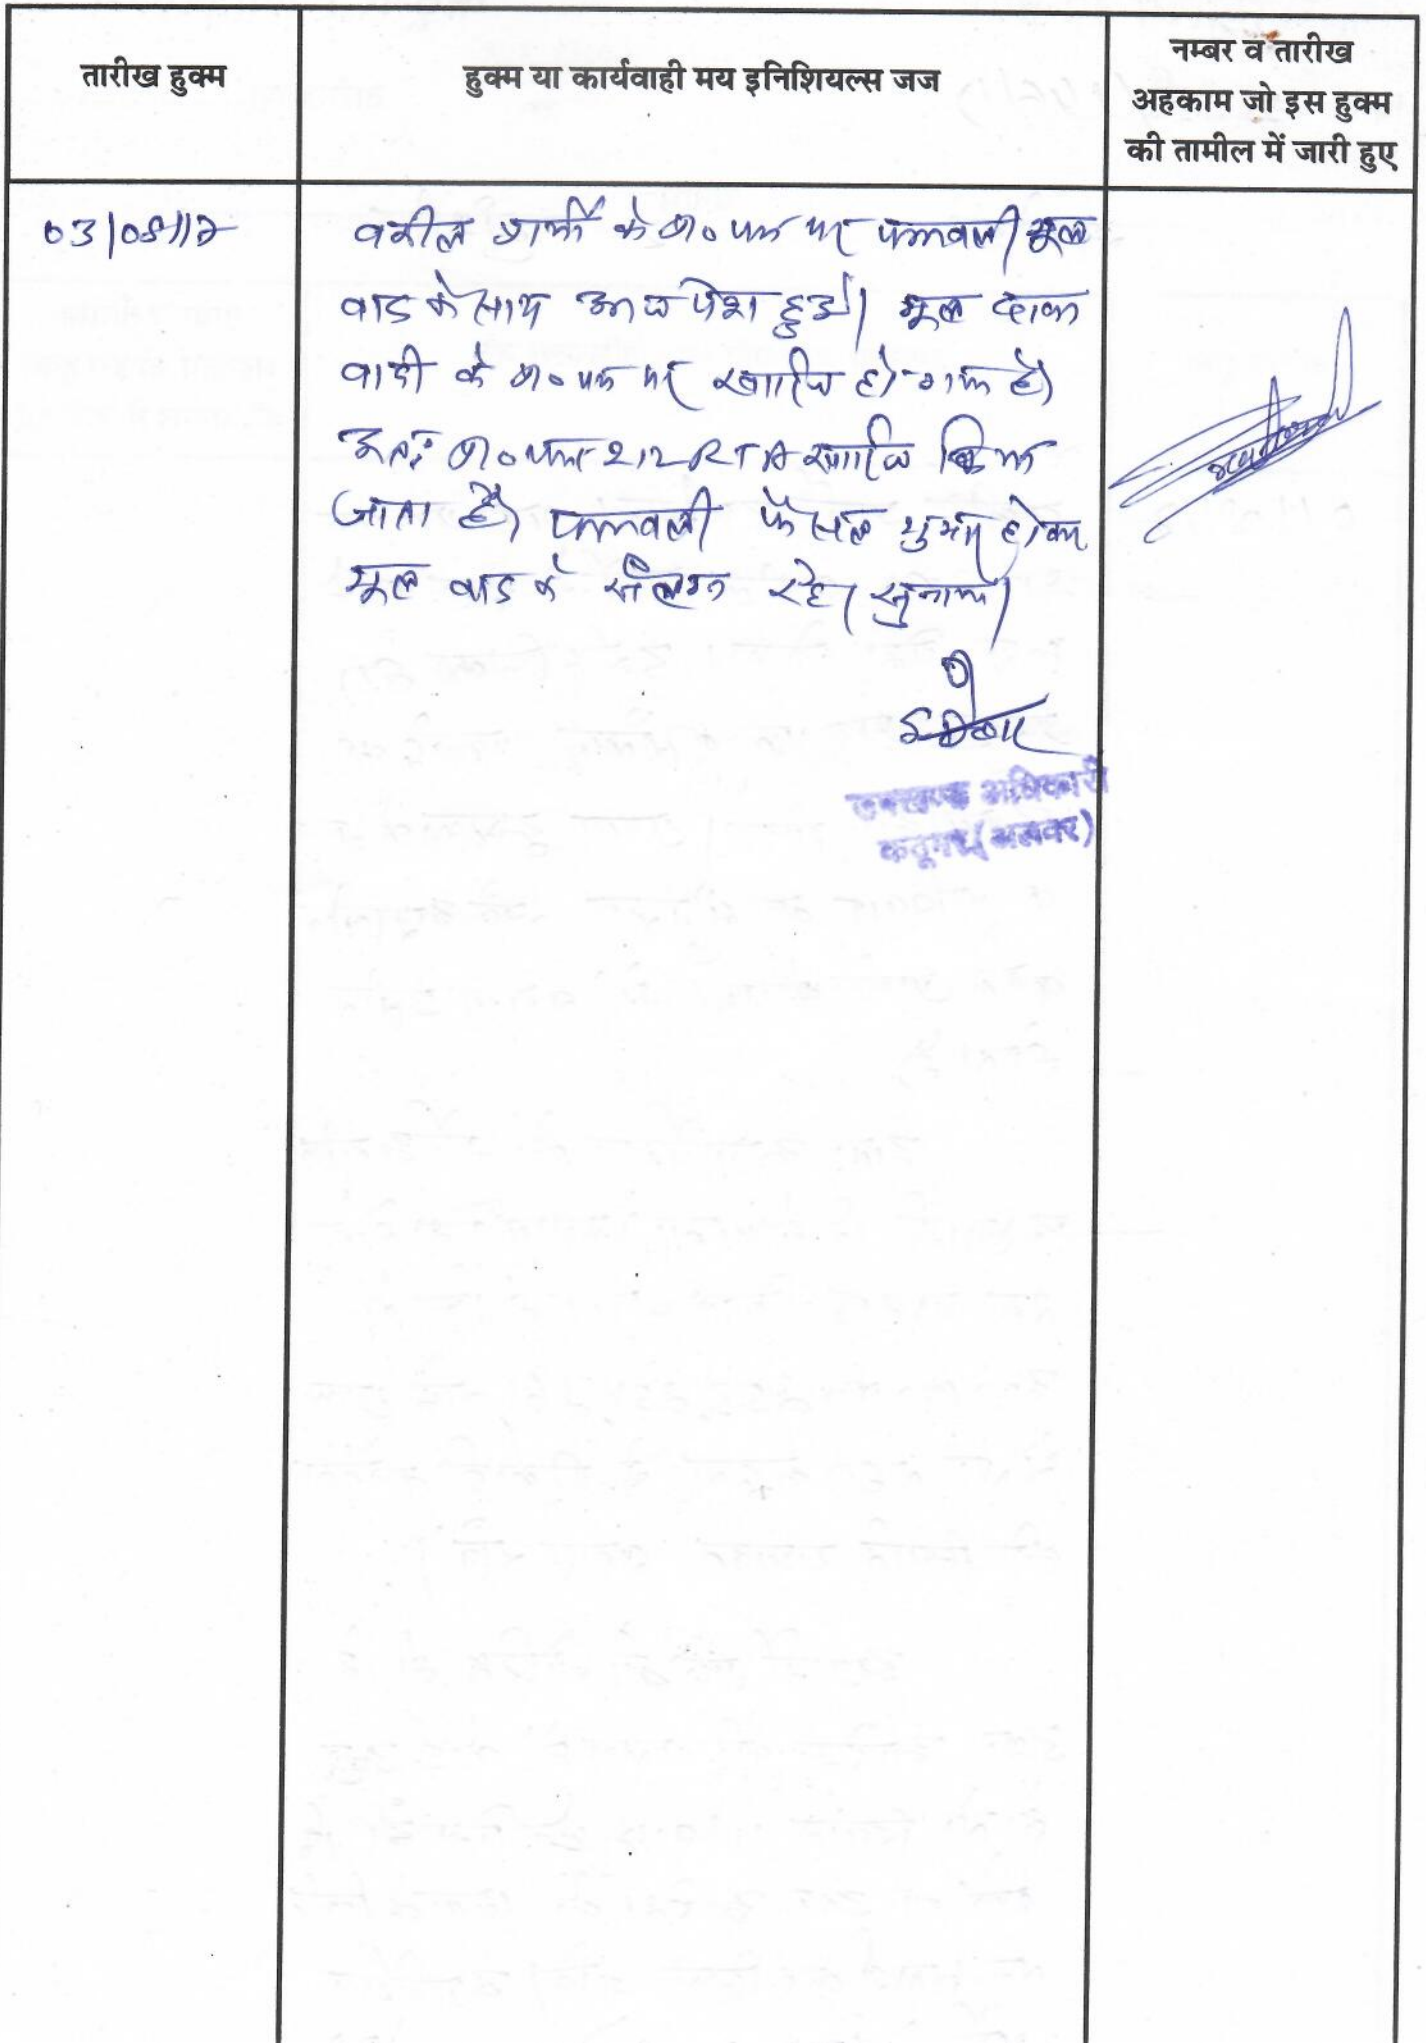 तारीख हुक्म
हुक्म या कार्यवाही मय इनिशियल्स जज
नम्बर व तारीख
अहकाम जो इस हुक्म
की तामील में जारी हुए
03/08/17
वकील प्रार्थी के प्रा० पत्र पर पत्रावली मूल
वाद के साथ आज पेश हुई। मूल दावा
वादी के प्रा० पत्र पर खारिज हो गया है।
अतः प्रा० पत्र 212 RTA खारिज किया
जाता है। पत्रावली फैसल शुमार होकर
मूल वाद के संलग्न रहे।
उपखण्ड अधिकारी
कठूमर (अलवर)